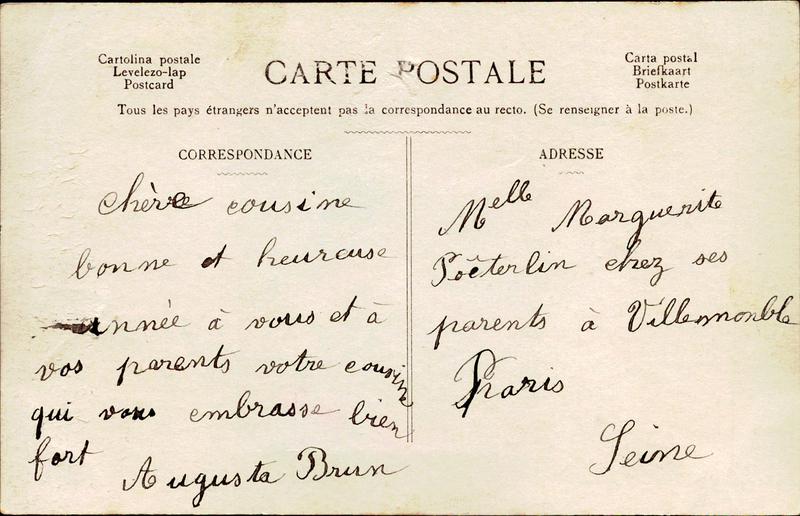 Cartolina postale
Levelezo-lap
Postcard
CARTE POSTALE
Carta postal
Briefkaart
Postkarte
Tous les pays étrangers n'acceptent pas la correspondance au recto. (Se renseigner à la poste.)
CORRESPONDANCE
chère cousine
bonne et heureuse
année à vous et à
vos parents votre cousine
qui vous embrasse bien
fort
Augusta Brun
ADRESSE
Melle Marguerite
Poëterlin chez ses
parents à Villemonble
Paris
Seine